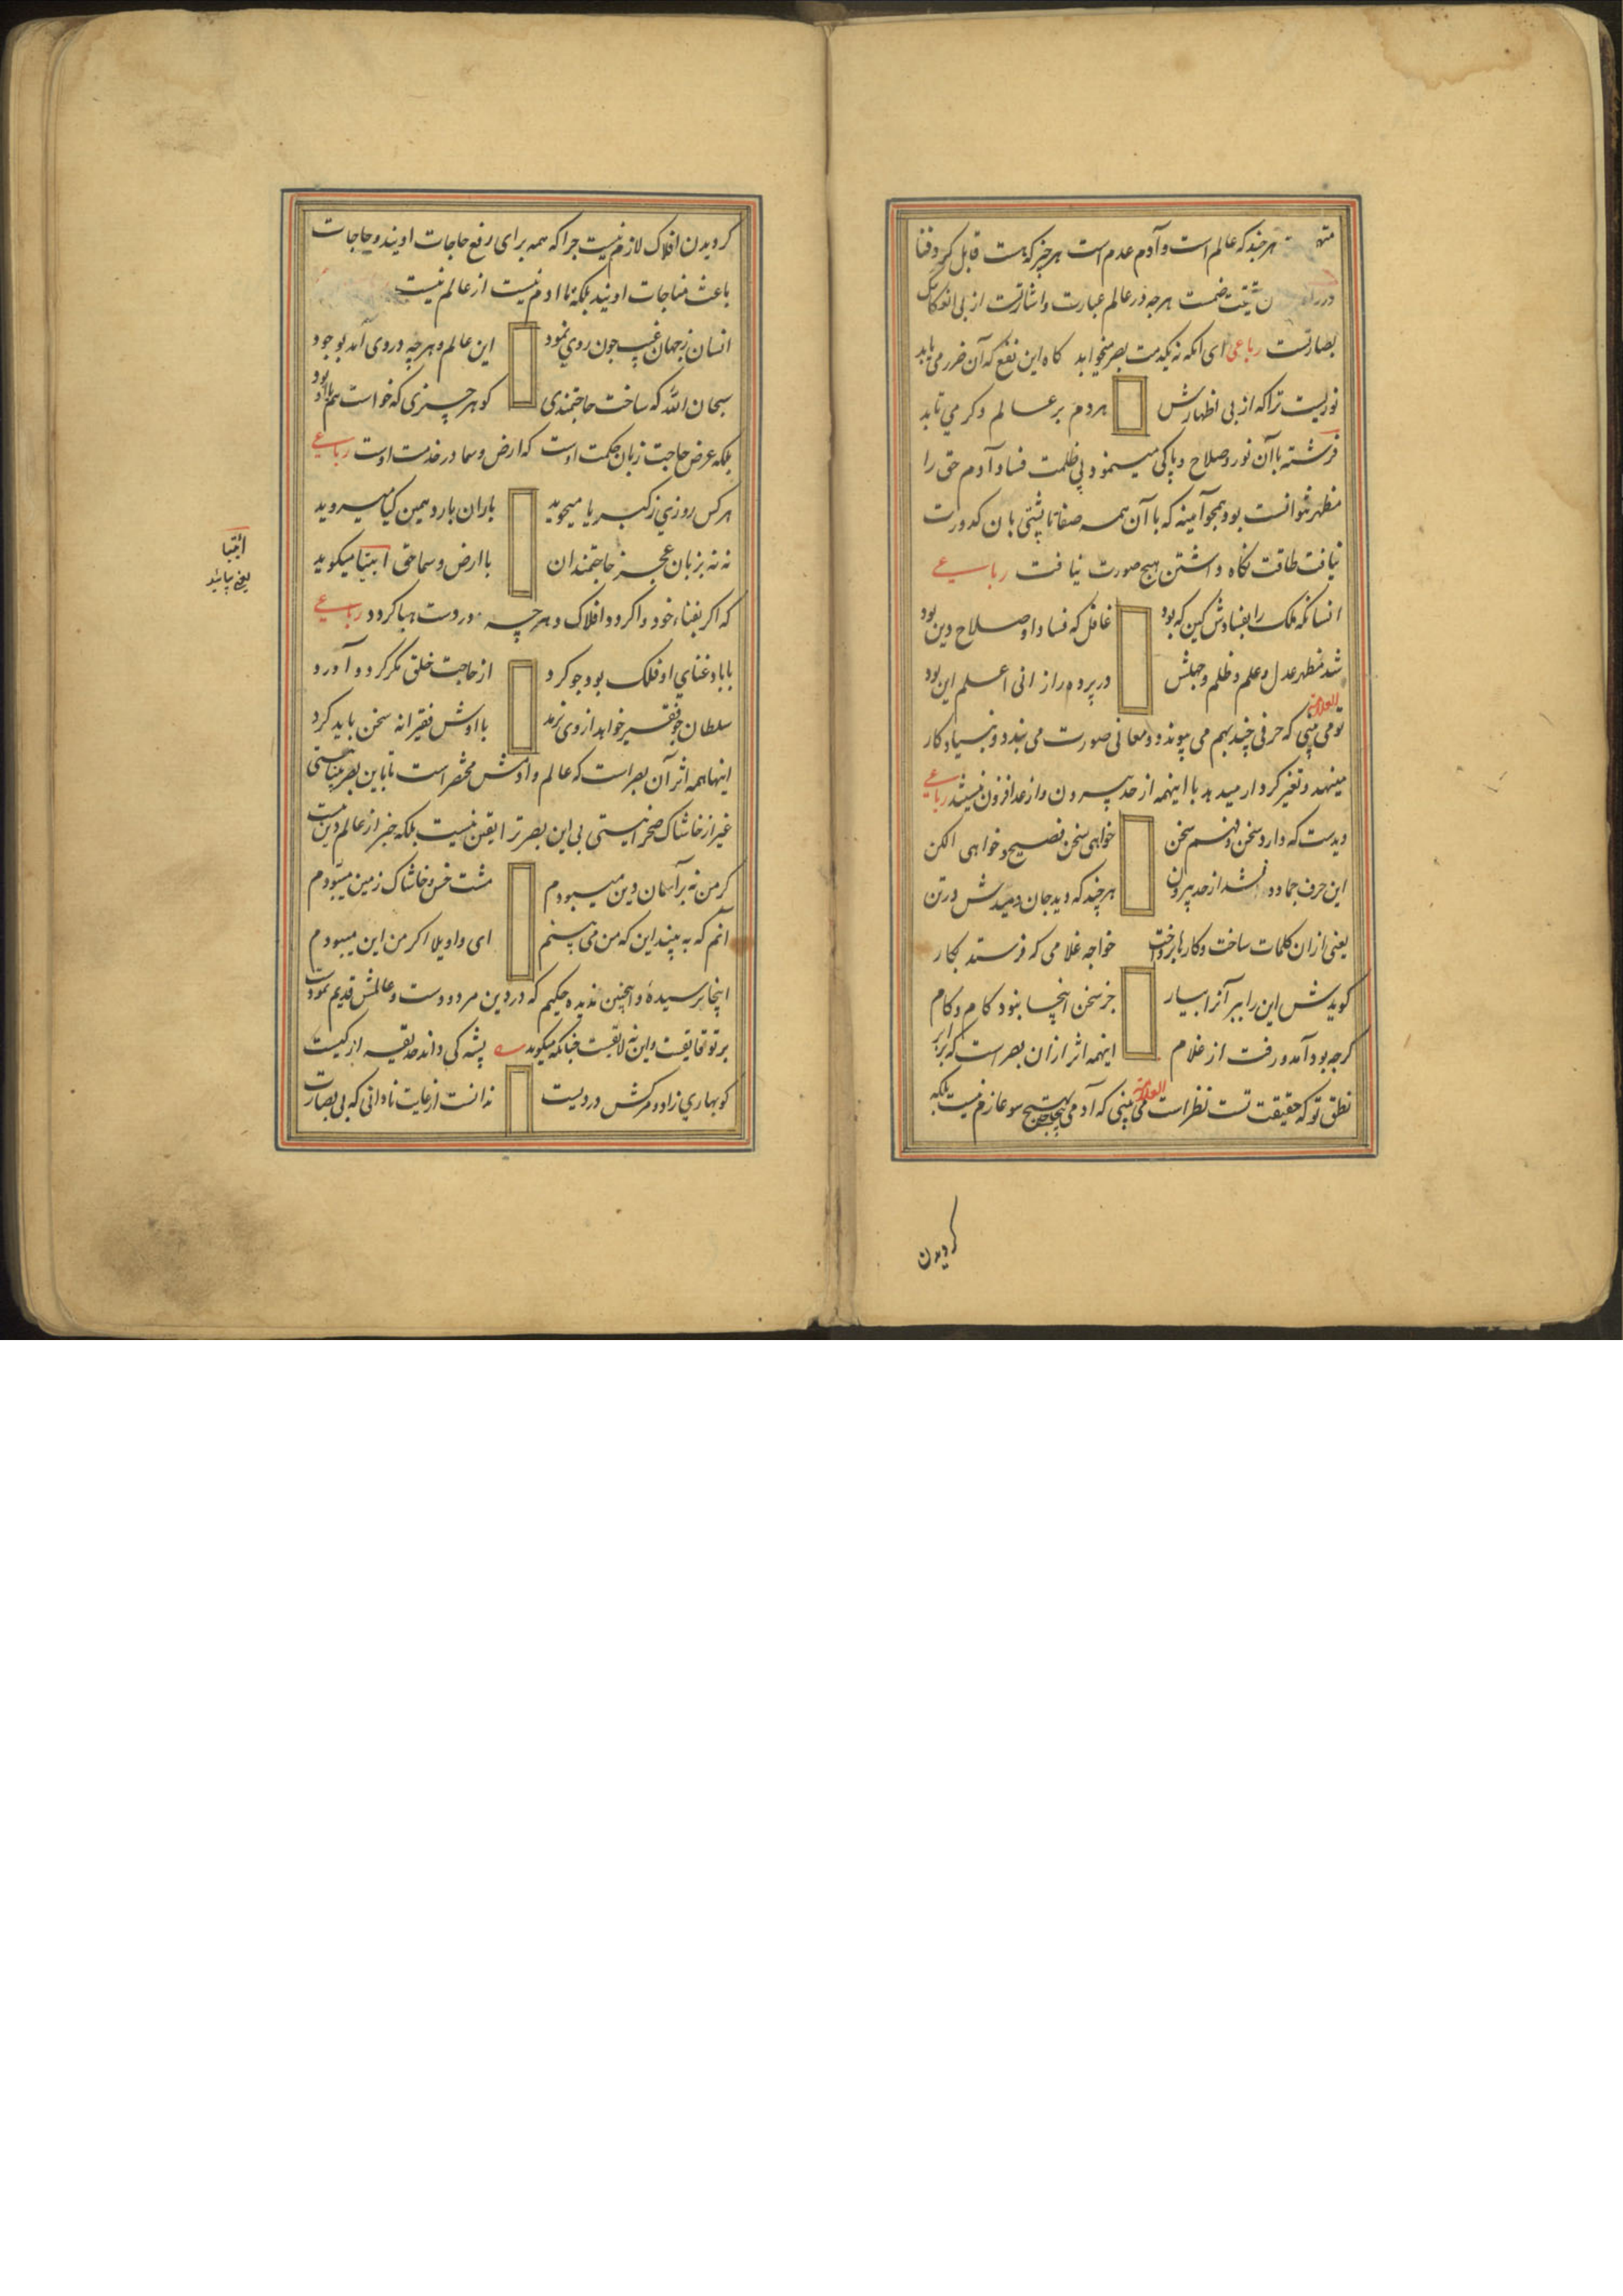 هرچند که عالم است و آدم عدم است هرچیز که هست قابل کرد و فنا
هرچه در عالم عبارت و اشارتست از بی
بصارتست رباعی ای انکه نه یکدمت بصر میخوابد کاه این نفع که آن ضرر می یابد
نوریست ترا که از بی اظهارش هر دم بر عالم دکر می تابد
فرشته با آن نور و صلاح و پاکی میسمود بی ظلمت فساد آدم حق را
مظهر نتوانست بود همچو آینه که با آن همه صفا تا پشتی بان کدورت
نیافت طاقت نکاه داشتن هیچ صورت نیافت رباعی
انسانکه ملک را بفسادش کین بود غافل که فساد او صلاح دین بود
شد مظهر عدل و علم و ظلم و جهلش در پرده راز انی اعلم این بود
تو می بینی که حرفی چند بهم می پیوندد و معانی صورت می بندد و بنیاد کار
مینهد و تغیر کردار میدهد با اینهمه از حد بیرون و از عدد افزون نیستند رباعی
دیدست که دارد سخن و فهم سخن خواهی سخن فصیح و خواهی الکن
این حرف جماد و نشد از حد بیرون هرچند که دید جان دمیدش در تن
یعنی از ان کلمات ساخت و کارها پرداخت خواجه غلامی که فرستد بکار
کویدش این را ببر آنرا بیار جز سخن اینجا بنود کام و کام
کرچه بود آمد و رفت از غلام اینهمه اثر از ان بصر است که برابر
نطق تو که حقیقت تست نظر است می بینی که آدمی هیچ سو عازم نیست بلکه
کردیدن
کردیدن افلاک لازم نیست چرا که همه برای رفع حاجات اویند و حاجات
باعث مناجات اویند بلکه تا ادم نیست از عالم نیست
انسان ز جهان غیب چون روی نمود این عالم و هرچه در وی آمد بوجود
سبحان الله که ساخت حاجتمندی کو هر چیزی که خواست هم با او بود
بلکه عرض حاجت زبان حکمت اوست که ارض و سما در خدمت اوست رباعی
هر کس روزی ز کبریا میجوید باران بارد همین کیا میروید
نه نه بزبان عجز حاجتمندان با ارض و سما حق ائتیا میکوید
ائتیا
یعنی بیائید
که اکر بغناء خود واکردد افلاک و هرچه در دست هبا کردد رباعی
با باد غنای او فلک بود چو کرد از حاجت خلق مکر کرد و آورد
سلطان چو فقیر خواهد از وی نرمد با اوش فقیرانه سخن باید کرد
اینها همه اثر آن بصر است که عالم و آدمش مختصر است تا باین بصر بینا نیستی
غیر از خاشاک صحرا نیستی بی این بصر ترا یقین نیست بلکه خبر از عالم دین نیست
کر من نه بر آسمان دین میبودم مشت خس و خاشاک زمین میبودم
آنم که به بینید این که من می بینم ای واویلا اکر من این میبودم
اینجا نرسیده و اینچنین ندیده حکیم که در دین مردودست و عالمش قدیم نمودست
بر تو فایقست و این نه لایقست چنانکه میکوید پشه کی داند حدیقه از کیست
کو بهاری زاد و مرکش در دیست ندانست از غایت نادانی که بی بصارت